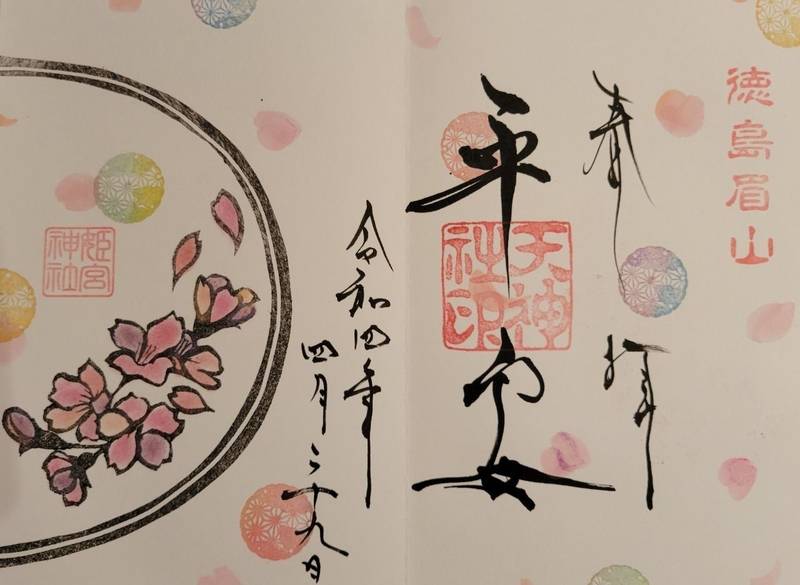 徳島眉山
奉拝
平安
天神社印
令和四年
四月二十九日
姫宮神社